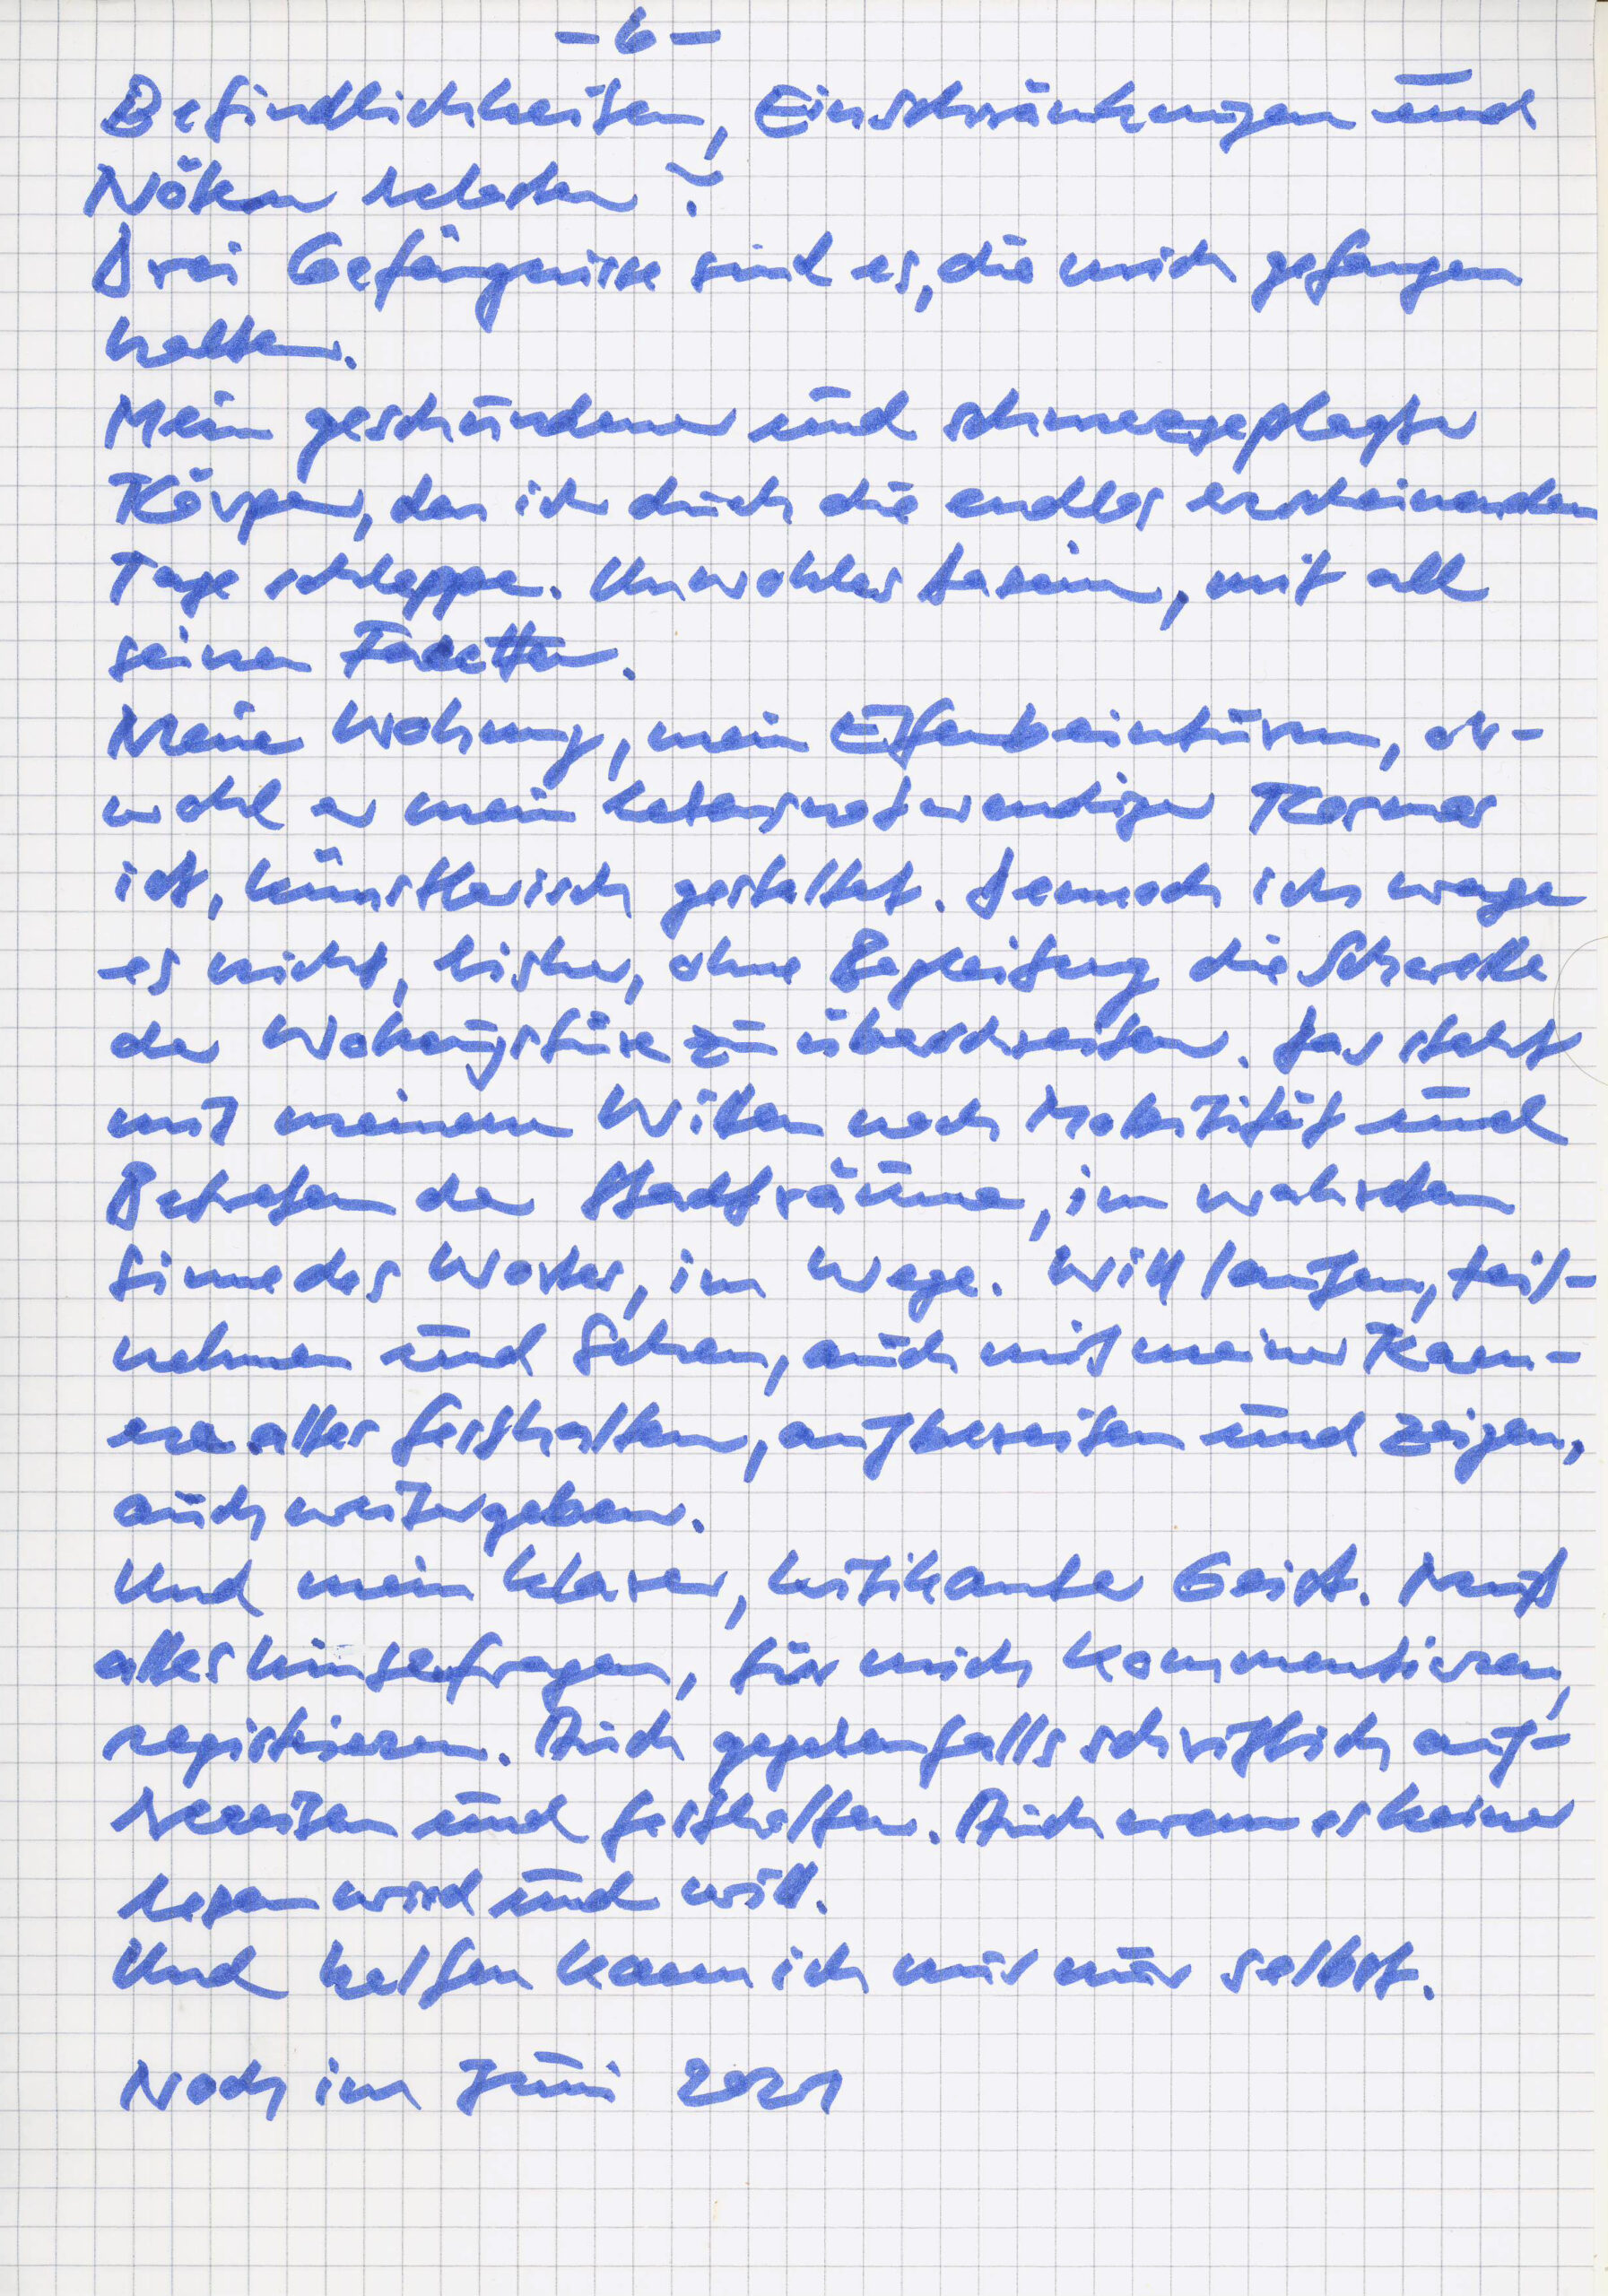 - 6 -
Befindlichkeiten, Einschränkungen und
Nöten beladen?
Drei Gefängnisse sind es, die mich gefangen
halten.
Mein geschundener und schmerzgeplagter
Körper, den ich durch die endlos erscheinenden
Tage schleppe. Unwohles Dasein, mit all
seinen Facetten.
Meine Wohnung, mein Elfenbeinturm, ob-
wohl er mein lebensnotwendiger Kosmos
ist, künstlerisch gestaltet. Dennoch ich wage
es nicht, bisher, ohne Begleitung die Schwelle
der Wohnungstüre zu überschreiten. Das steht
mit meinem Willen nach Mobilität und
Betreten der Stadträume, im wahrsten
Sinne des Wortes, im Wege. Will laufen, teil-
nehmen und Sehen, auch mit meiner Kam-
era alles festhalten, aufbereiten und zeigen,
auch weitergeben.
Und mein klarer, kritikanter Geist. Muß
alles hinterfragen, für mich kommentieren,
registrieren. Auch gegebenfalls schriftlich auf-
bereiten und festhalten. Auch wenn es keiner
lesen wird und will.
Und helfen kann ich mir nur selbst.
Noch im Juni 2021